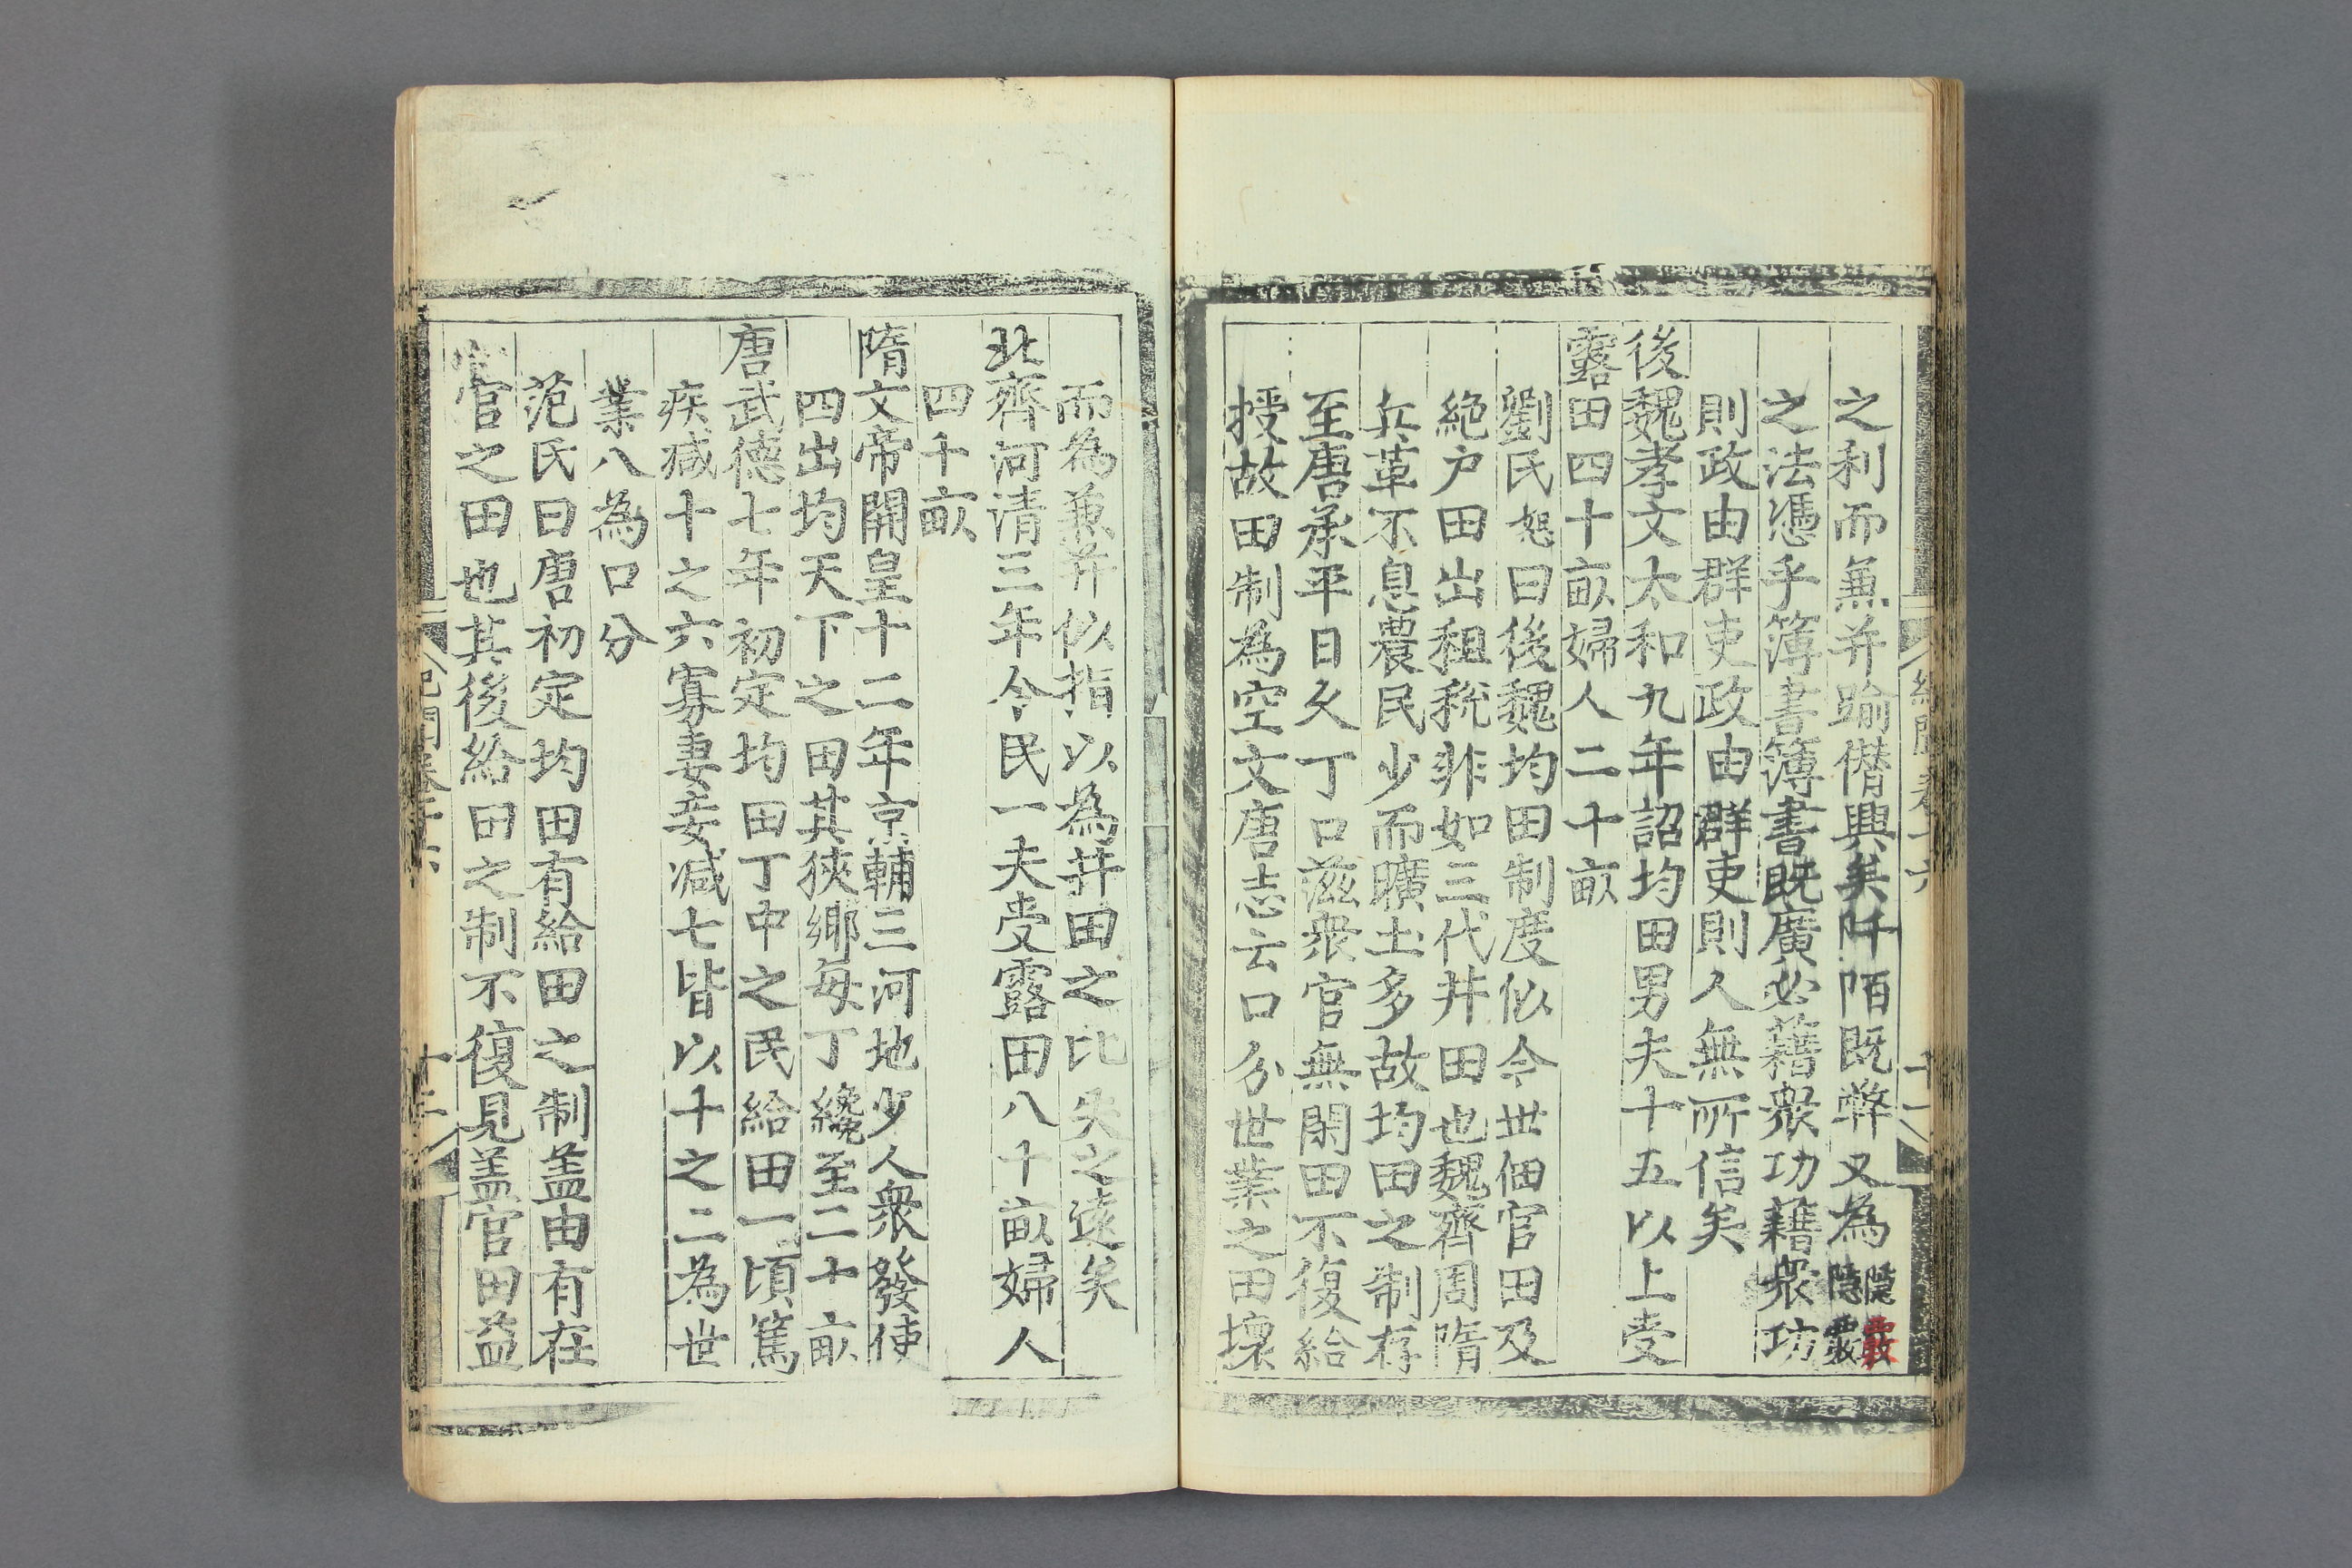 之利而兼并踰僭興矣阡陌既弊又為隱覈隱覈
之法憑乎簿書簿書既廣必藉衆功藉衆功
則政由群吏政由群吏則人無所信矣
後魏孝文太和九年詔均田男夫十五以上受
露田四十畝婦人二十畝
劉氏恕曰後魏均田制度似今世佃官田及
絶户田出租稅非如三代井田也魏齊周隋
兵革不息農民少而曠土多故均田之制存
至唐承平日久丁口滋衆官無閑田不復給
授故田制為空文唐志云口分世業之田壞
而為兼并似指以為井田之比失之遠矣
北齊河清三年令民一夫受露田八十畝婦人
四十畝
隋文帝開皇十二年京輔三河地少人衆發使
四出均天下之田其狹鄉每丁纔至二十畝
唐武德七年初定均田丁中之民給田一頃篤
疾减十之六寡妻妾减七皆以十之二為世
業八為口分
范氏曰唐初定均田有給田之制盖由有在
官之田也其後給田之制不復見盖官田益